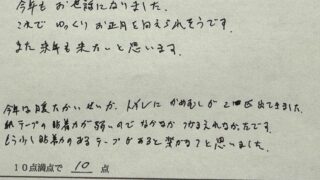 今年も お世話になりました。
これで ゆっくり お正月を 迎えられそうです。
また 来年も 来たいと思います。
今年は 暖たかいせいか、トイレに かめむしが 2匹 出てきました。
紙テープの粘着力が弱いので なかなか つかまえれなかったです。
もう少し 粘着力の あるテープがあると 楽かな?と 思いました。
10点満点で 10 点